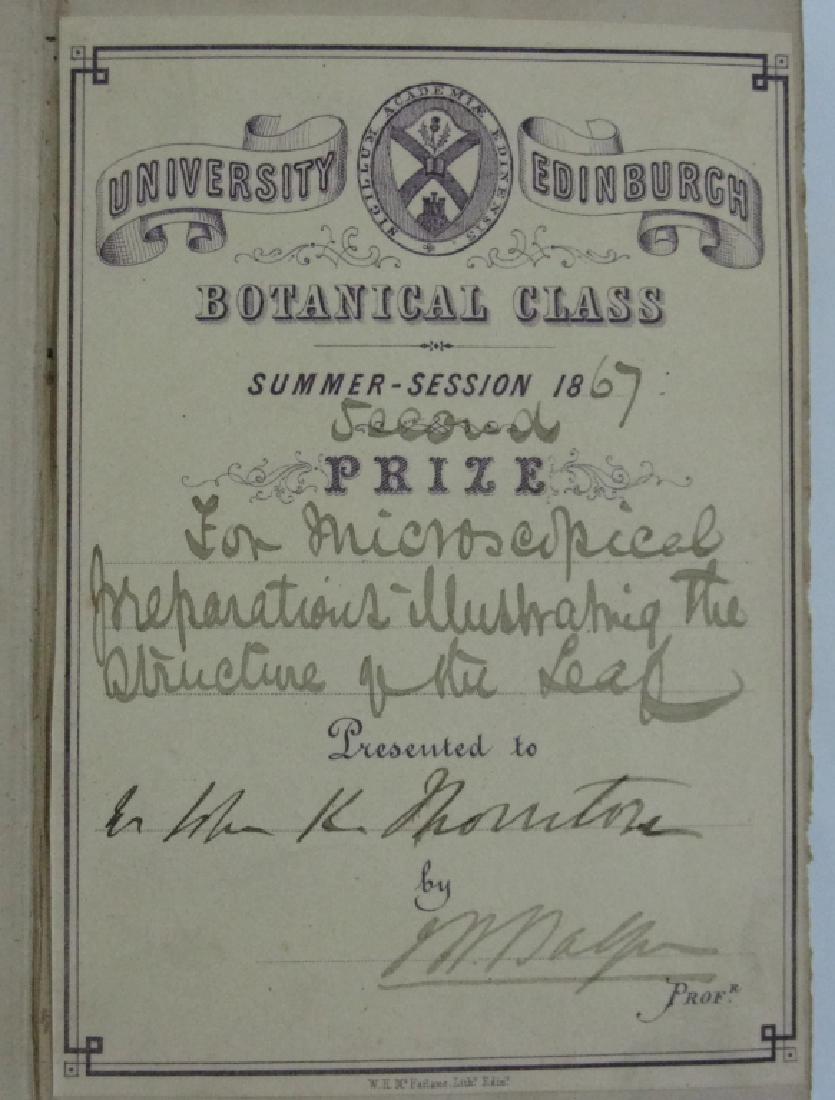 UNIVERSITY
SIGILLUM ACADEMIÆ EDINENSIS
EDINBURGH
BOTANICAL CLASS
SUMMER-SESSION 1867
Second
PRIZE
For Microscopical
preparations illustrating the
Structure of the Leaf
Presented to
John K. Thornton
by
Balfour
PROF.R
W.H. Mc Farlane, Lith.r Edin.r